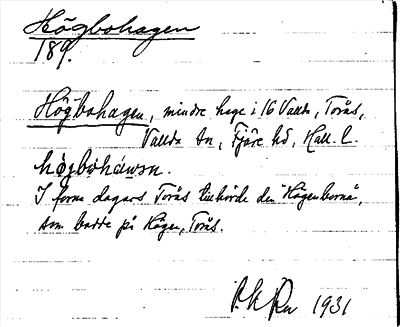 Högbohagen
189.
Högbohagen, mindre hage i 16 Vallda, Torås,
Vallda sn, Fjäre hd, Hall. l.
högboháwɔn.
I forna dagars Torås tillhörde den "Högenborna",
som bodde på Högen, Torås.
1931